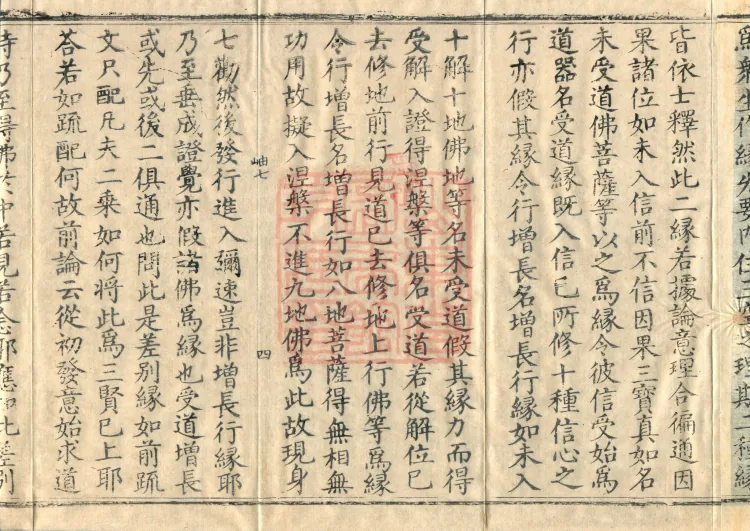 皆依士釋然此二縁若據論意理合徧通因
果諸位如未入信前不信因果三寶真如名
未受道佛菩薩等以之為縁令彼信受始為
道器名受道縁既入信已所修十種信心之
行亦假其縁令行增長名增長行縁如未入
十解十地佛地等名未受道假其縁力而得
受解入證得涅槃等俱名受道若從解位已
去修地前行見道已去修地上行佛等為縁
令行增長名增長行如八地菩薩得無相無
功用故擬入涅槃不進九地佛為此故現身
岫七
四
七勸然後發行進入彌速豈非增長行縁耶
乃至垂成證覺亦假諸佛為縁也受道增長
或先或後二俱通也問此是差別縁如前疏
文只配凡夫二乘如何將此為三賢已上耶
荅若如疏配何故前論云從初發意始求道
時乃至得佛於中若見若念耶應知此差別